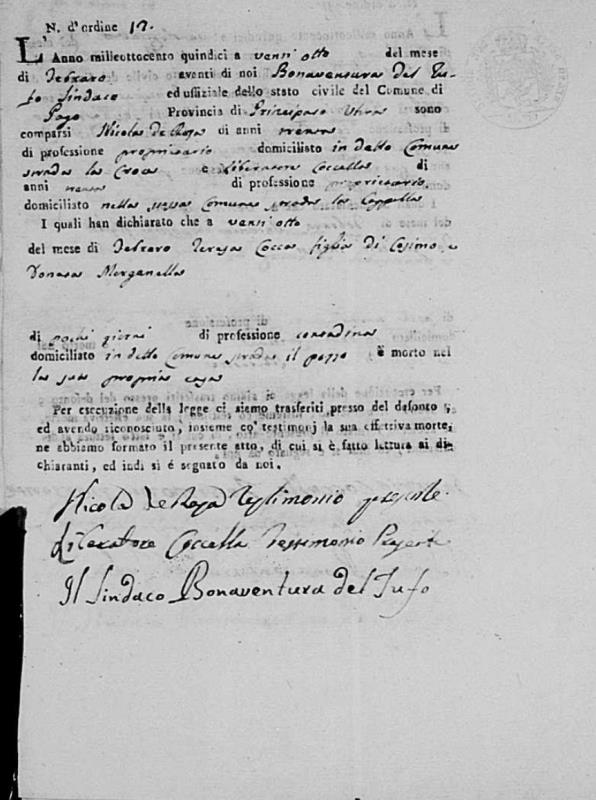 N. d'ordine 12.
L'Anno milleottocento quindici a venti otto del mese
di Febraro avanti di noi Bonaventura Del Tu-
fo Sindaco ed uffiziale dello stato civile del Comune di
Pago Provincia di Principato Ultra sono
comparsi Nicola de Roja di anni trenta
di professione proprietario domiciliato in detto Comune
strada la Croce e Liberatore Coccella di
anni trenta di professione proprietario
domiciliato nella stessa Comune strada la Cappella
I quali han dichiarato che a venti otto
del mese di Febraro Teresa Cocca figlia di Cosimo e
Donata Morganella
di pochi giorni di professione contadina
domiciliato in detto Comune strada il pozzo è morto nel
la sua propria casa
Per esecuzione della legge ci siamo trasferiti presso del defonto,
ed avendo riconosciuto, insieme co' testimonj la sua effettiva morte,
ne abbiamo formato il presente atto, di cui si è fatto lettura ai di-
chiaranti, ed indi si é segnato da noi.
Nicola de Roja Testimonio presente
Liberatore Coccella Testimonio Presente
Il Sindaco Bonaventura del Tufo